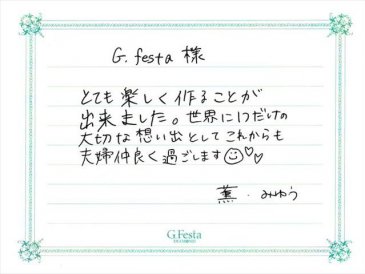 G.festa 様
とても楽しく作ることが
出来ました。世界に1つだけの
大切な想い出としてこれからも
夫婦仲良く過ごします☺♡♡
薫・みゆう
G.Festa
DIAMOND